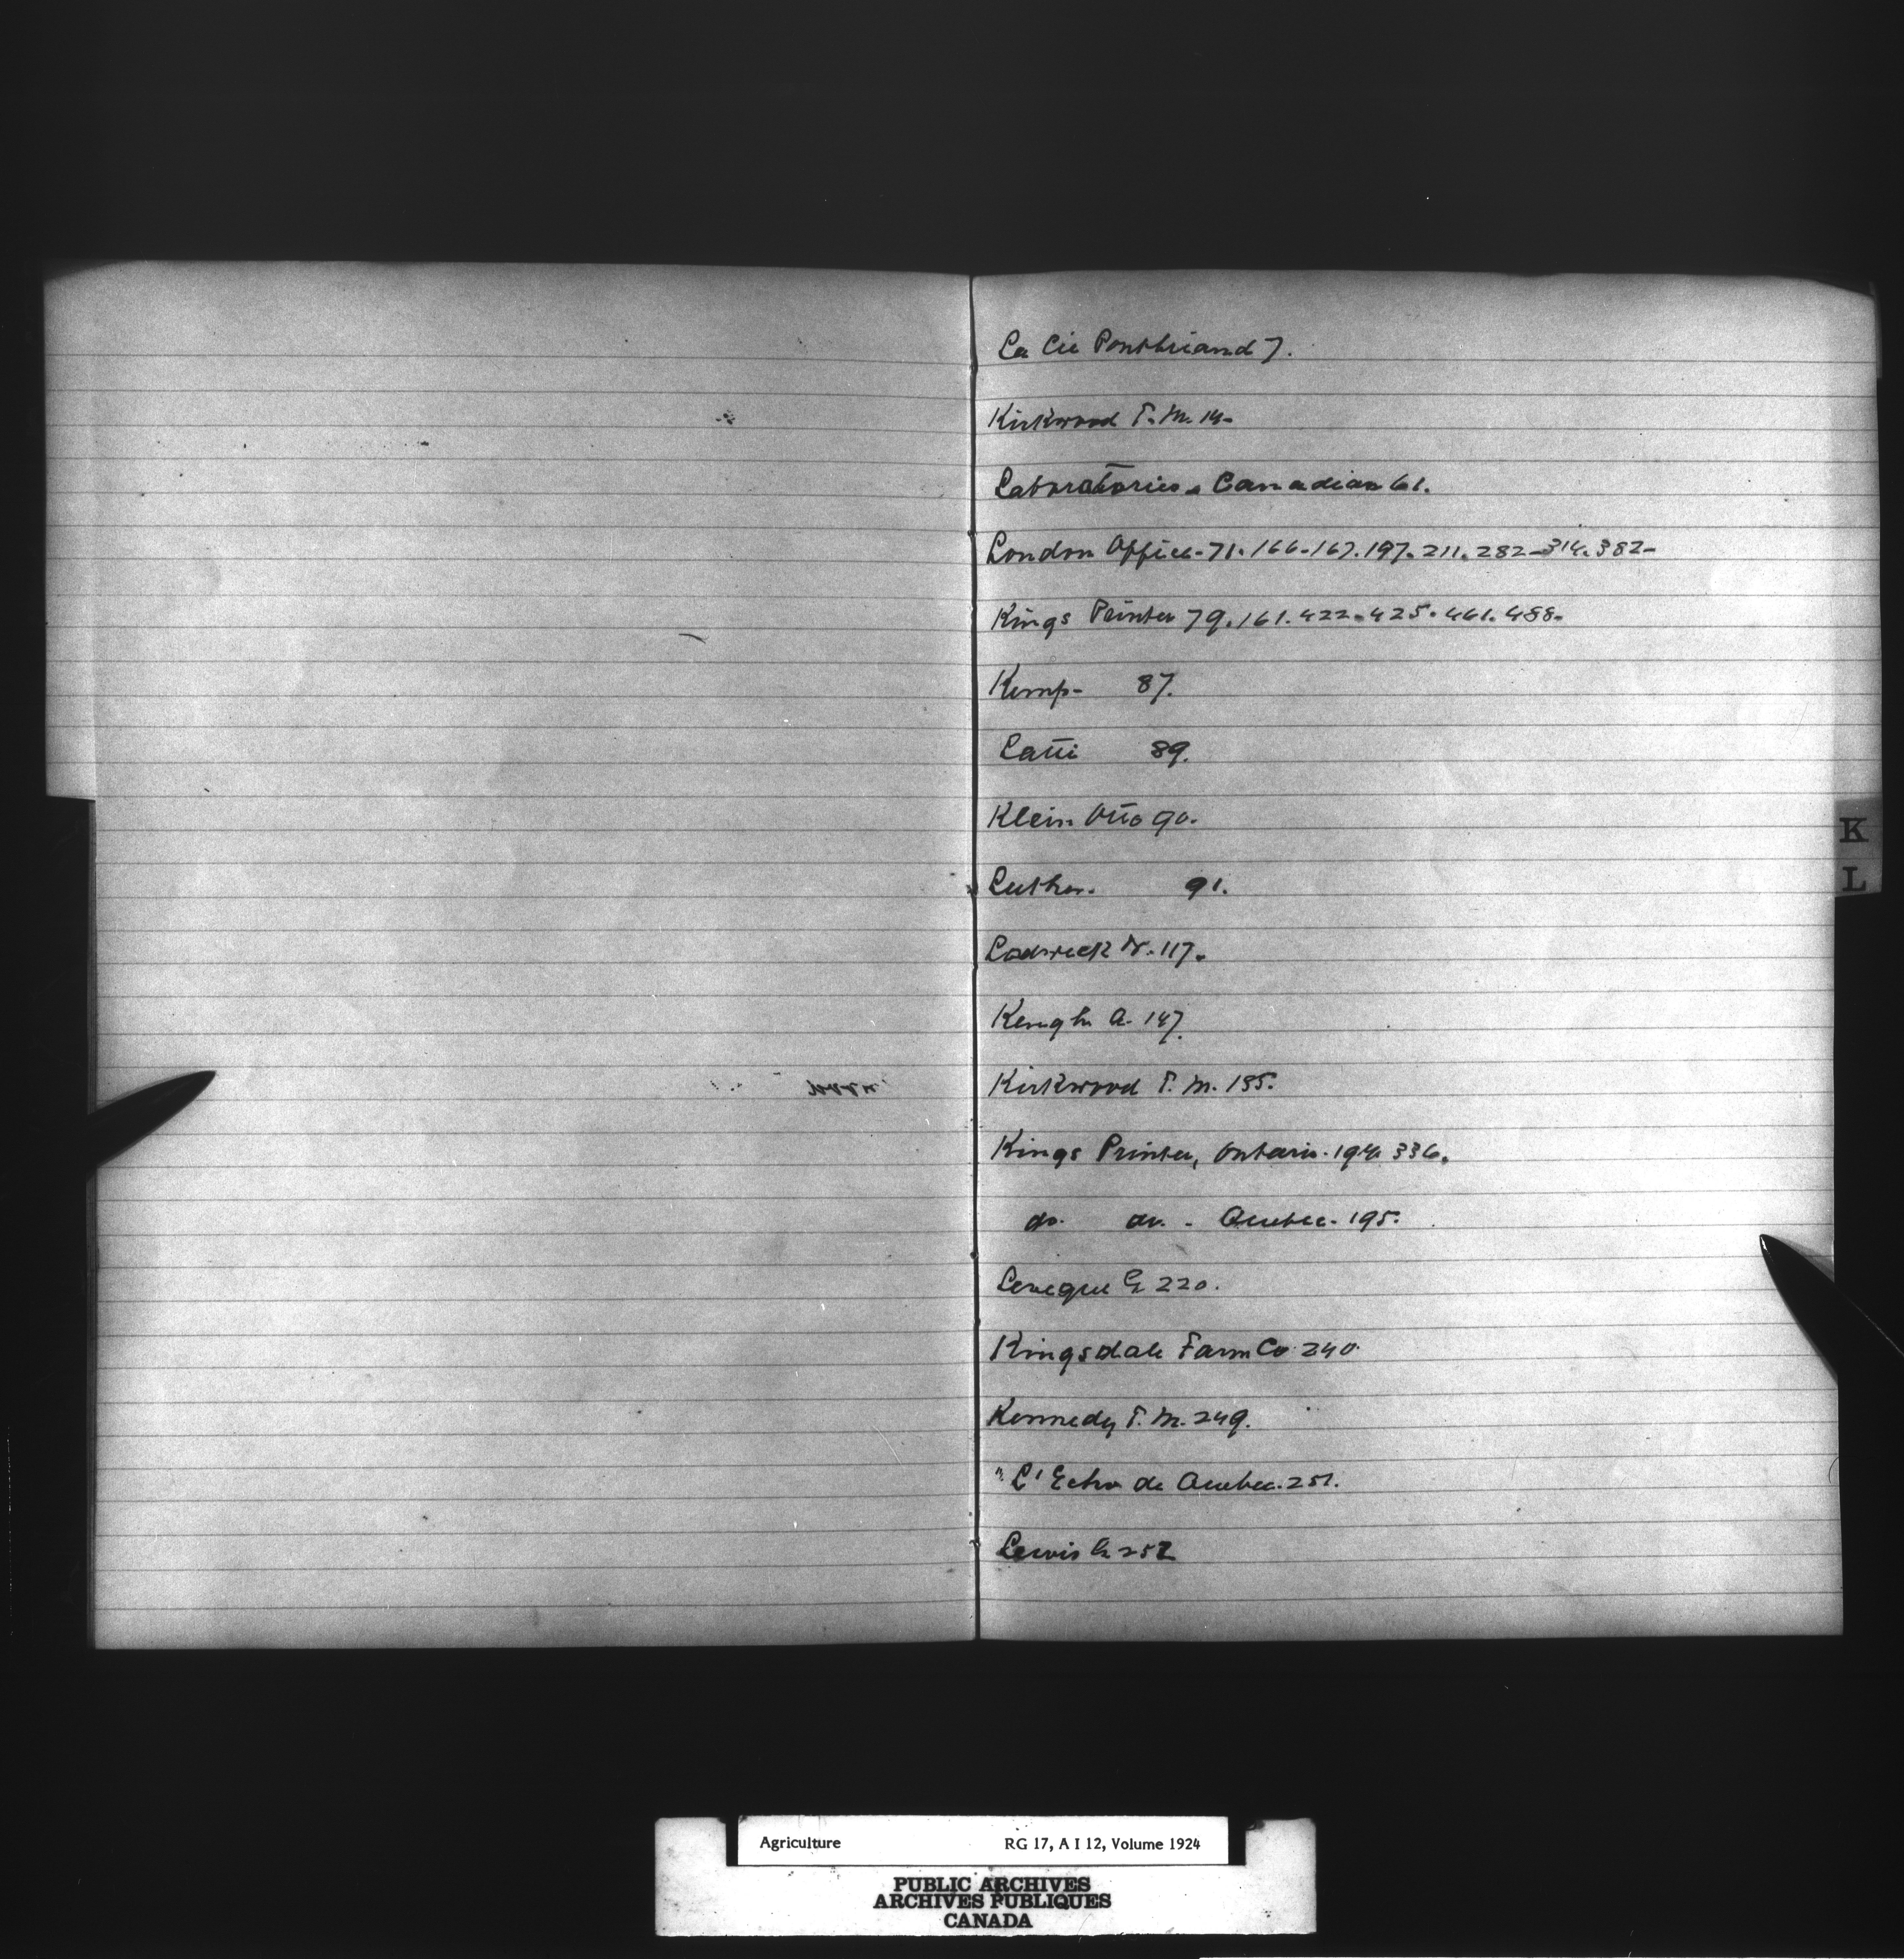 La Cie Pontbriand 7.
Kirkwood T. M. 14-
Laboratories - Canadian 61.
London Office - 71. 166-167. 197. 211. 282-314. 382-
Kings Printer 79. 161. 422. 425. 461. 488.
Kemp- 87.
Latti 89.
Klein Otto 90.
Luther. 91.
Lodwick 117.
Keugh A. 147.
Kirkwood T. M. 155.
Kings Printer, Ontario. 194. 336.
do. do. - Quebec. 195.
Leveque G 220.
Kingsdale Farm Co. 240.
Kennedy T. M. 249.
"L'Echo de Quebec. 251.
Lewis G 252
K
L
Agriculture RG 17, A I 12, Volume 1924
PUBLIC ARCHIVES
ARCHIVES PUBLIQUES
CANADA